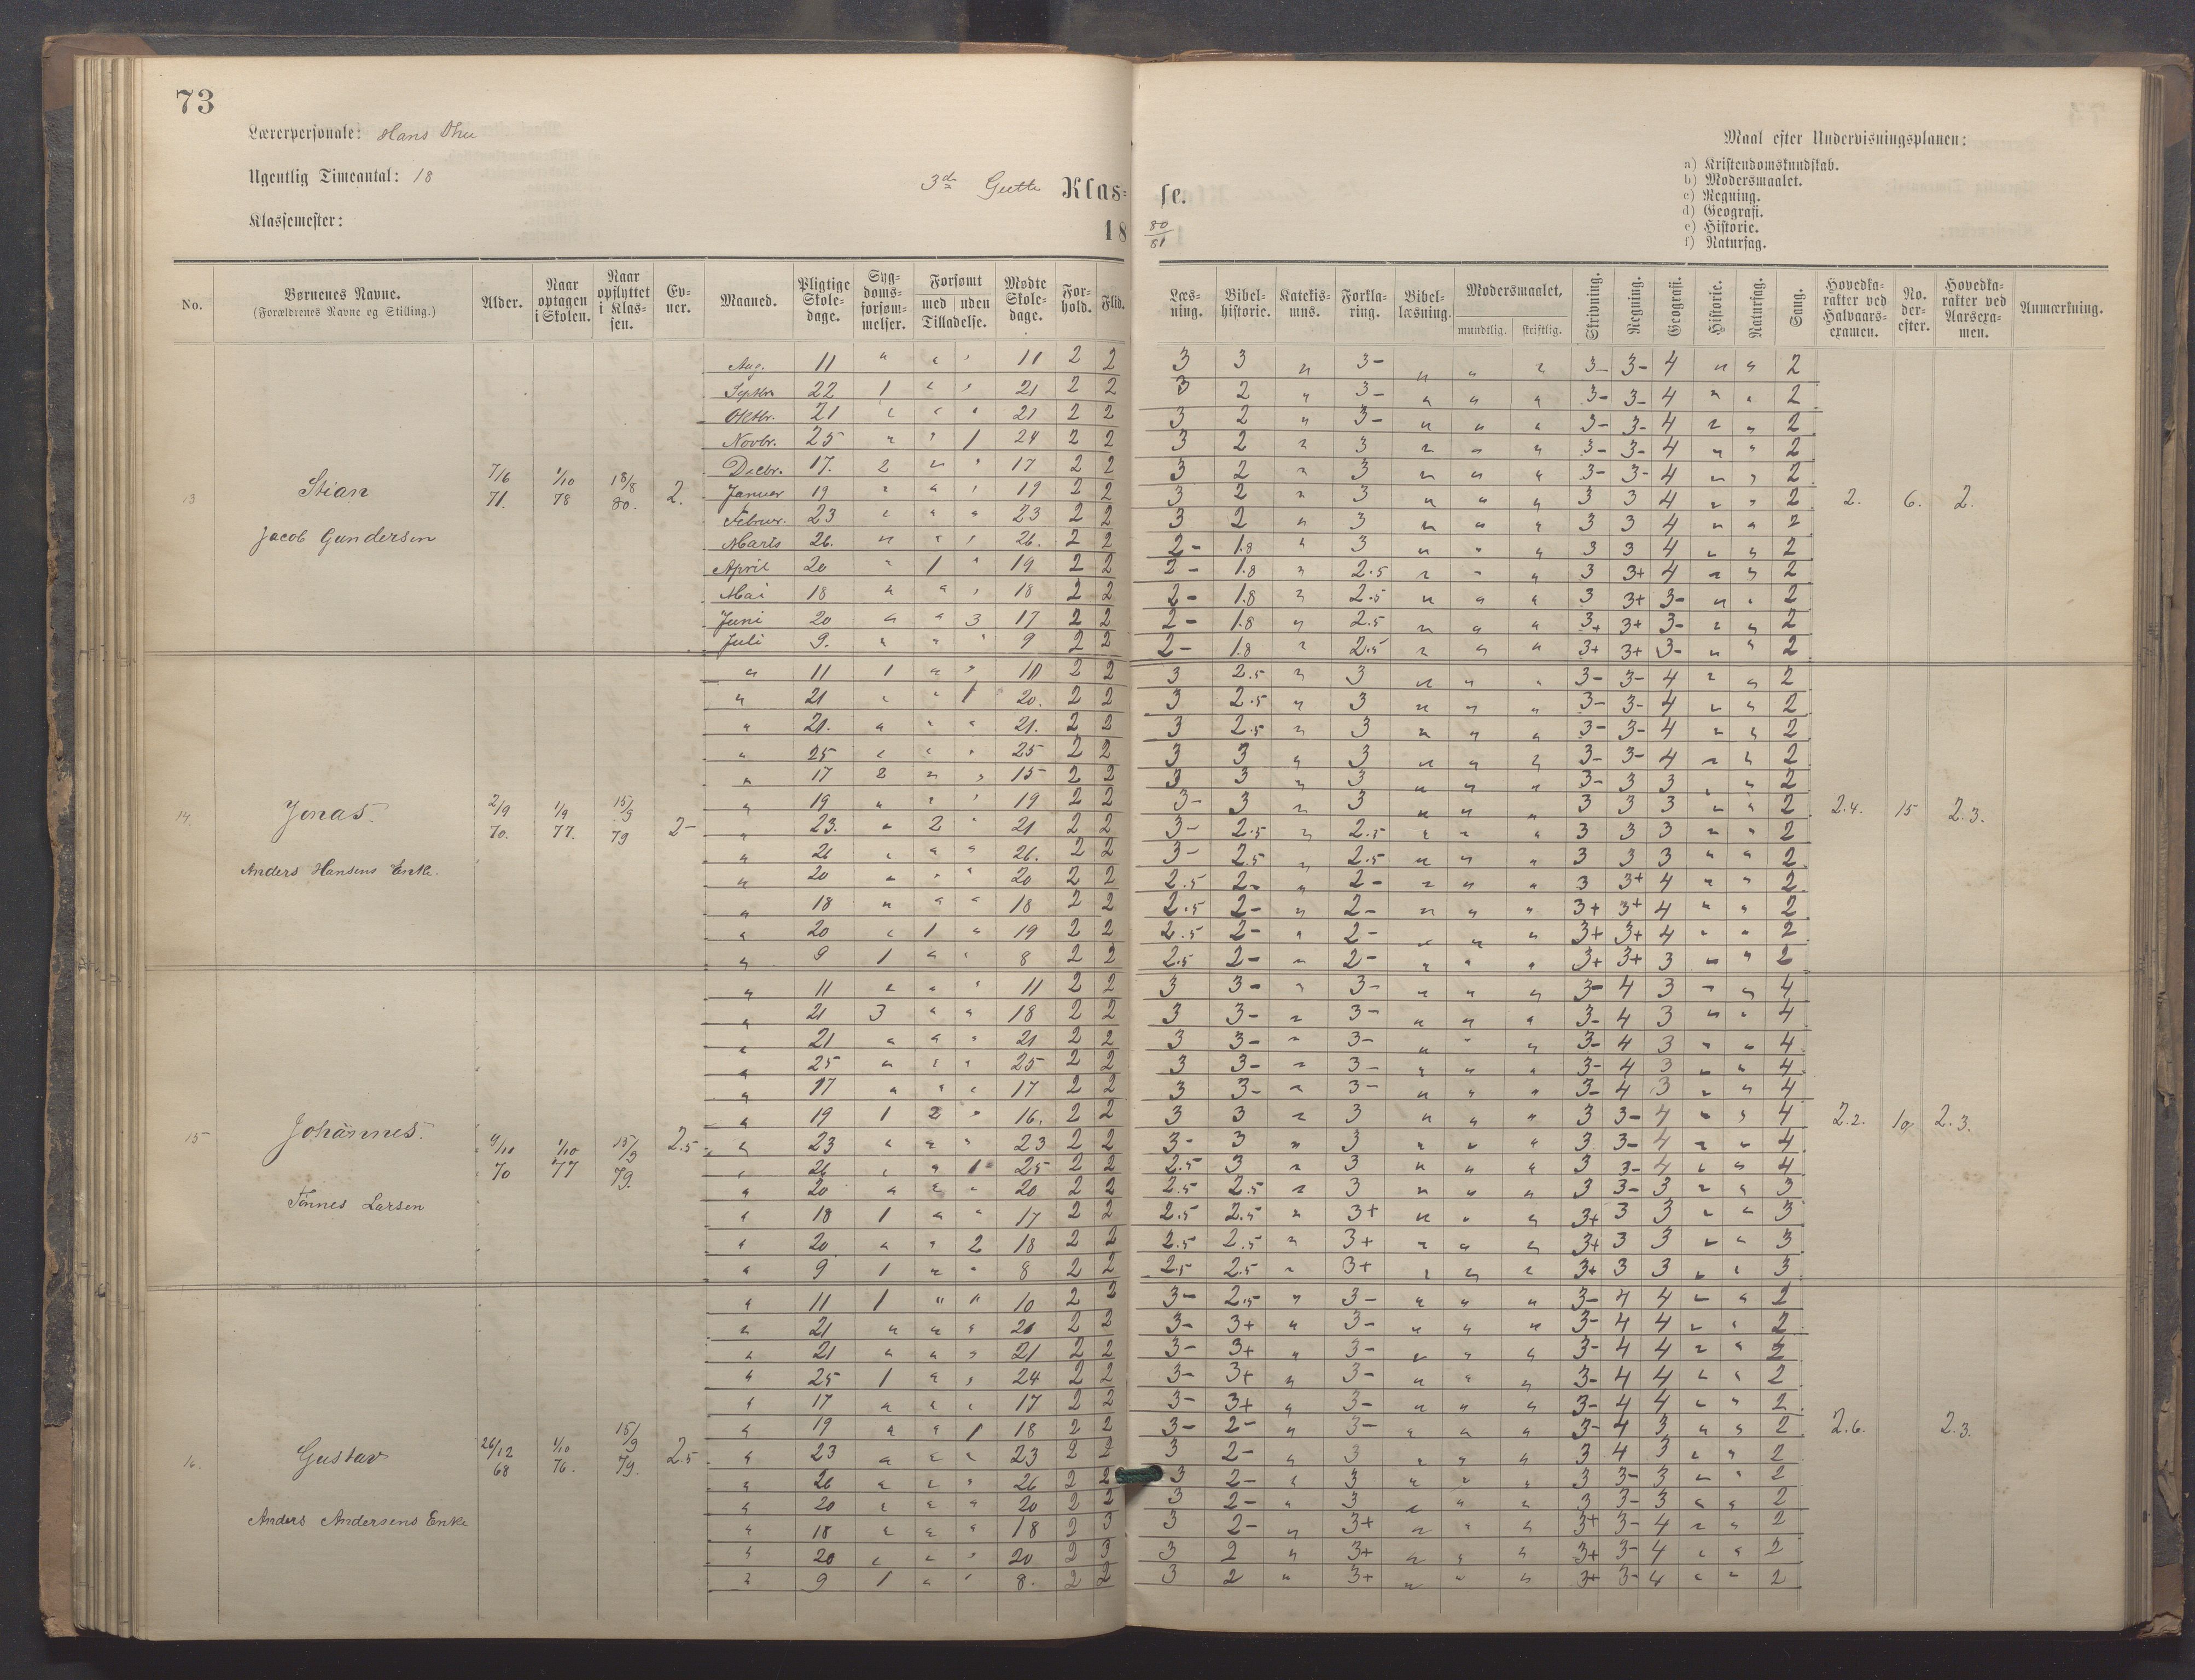 73
Lærerpersonale: Hans Thu
Ugentlig Timeantal: 18
Klassemester:
3die Gutte Klas= se.
18 80/81
Maal efter Undervisningsplanen:
a) Kristendomskundskab.
b) Modersmaalet.
c) Regning.
d) Geografi.
e) Historie.
f) Naturfag.
No. Børnenes Navne. (Forældrenes Navne og Stilling.) Alder. Naar optagen i Skolen. Naar opflyttet i Klassen. Evner. Maaned. Pligtige Skoledage. Sygdomsforsømmelser. Forsømt med uden Tilladelse. Mødte Skoledage. Forhold. Flid. Læsning. Bibelhistorie. Katekismus. Forklaring. Bibellæsning. Modersmaalet, mundtlig. skriftlig. Skrivning. Regning. Geografi. Historie. Naturfag. Sang. Hovedkarakter ved Halvaarsexamen. No. derefter. Hovedkarakter ved Aarsexamen. Anmærkning.
13 Stian Jacob Gundersen 7/6 71. 1/10 78 18/8 80. 2. 2. 6. 2.
Aug. 11 " " " 11 2 2 3 3 " 3- " " " 3- 3- 4 " " 2
Septbr. 22 1 " " 21 2 2 3 2 " 3- " " " 3- 3- 4 " " 2
Oktbr. 21 " " " 21 2 2 3 2 " 3- " " " 3- 3- 4 " " 2
Novbr. 25 " " 1 24 2 2 3 2 " 3 " " " 3- 3- 4 " " 2
Decbr. 17. 2 " " 17 2 2 3 2 " 3 " " " 3- 3- 4 " " 2
Januar 19 " " " 19 2 2 3 2 " 3 " " " 3 3 4 " " 2
Februar. 23 " " " 23 2 2 3 2 " 3 " " " 3 3 4 " " 2
Marts 26. " " " 26. 2 2 2- 1.8 " 3 " " " 3 3 4 " " 2
April 20 " 1 " 19 2 2 2- 1.8 " 2.5 " " " 3 3+ 4 " " 2
Mai 18 " " " 18 2 2 2- 1.8 " 2.5 " " " 3 3+ 3- " " 2
Juni 20 " " 3 17 2 2 2- 1.8 " 2.5 " " " 3+ 3+ 3- " " 2
Juli 9. " " " 9 2 2 2- 1.8 " 2.5 " " " 3+ 3+ 3- " " 2
14. Jonas. Anders Hansens Enke. 2/9 70. 1/9 77. 15/9 79 2- 2.4. 15 2.3.
" 11 1 " " 10 2 2 3 2.5 " 3 " " " 3- 3- 4 " " 2
" 21 " " 1 20. 2 2 3 2.5 " 3 " " " 3- 3- 4 " " 2
" 21. " " " 21. 2 2 3 2.5 " 3 " " " 3- 3- 4 " " 2
" 25 " " " 25 2 2 3 3 " 3 " " " 3- 3- 4 " " 2
" 17 2 " " 15 2 2 3 3 " 3 " " " 3- 3 3 " " 2
" 19 " " " 19 2 2 3- 3 " 3 " " " 3 3 3 " " 2
" 23. " 2 " 21 2 2 3- 2.5 " 2.5 " " " 3 3 3 " " 2
" 26 " " " 26. 2 2 3- 2.5 " 2.5 " " " 3 3 3 " " 2
" 20 " " " 20 2 2 2.5 2- " 2- " " " 3 3+ 4 " " 2
" 18 " " " 18 2 2 2.5 2- " 2- " " " 3+ 3+ 4 " " 2
" 20 " 1 " 19 2 2 2.5 2- " 2- " " " 3+ 3+ 4 " " 2
" 9 1 " " 8 2 2 2.5 2- " 2- " " " 3+ 3+ 3 " " 2
15 Johannes. Tønnes Larsen 9/10 70 1/10 77 15/9 79. 2.5 2.2. 10 2.3.
" 11 " " " 11 2 2 3 3- " 3- " " " 3- 4 3 " " 4
" 21 3 " " 18 2 2 3 3- " 3- " " " 3- 4 3 " " 4
" 21 " " " 21 2 2 3 3- " 3- " " " 3- 4 3 " " 4
" 25 " " " 25 2 2 3 3- " 3- " " " 3- 4 3 " " 4
" 17 " " " 17 2 2 3 3- " 3- " " " 3- 4 3 " " 4
" 19 1 2 " 16. 2 2 3 3 " 3 " " " 3 3- 4 " " 4
" 23 " " " 23 2 2 3- 3 " 3 " " " 3 3- 4 " " 4
" 26 " " 1 25 2 2 2.5 3 " 3 " " " 3 3- 4 " " 4
" 20 " " " 20 2 2 2.5 2.5 " 3 " " " 3 3- 3 " " 3
" 18 1 " " 17 2 2 2.5 2.5 " 3+ " " " 3+ 3 3 " " 3
" 20 " " 2 18 2 2 2.5 2.5 " 3+ " " " 3+ 3 3 " " 3
" 9 1 " " 8 2 2 2.5 2.5 " 3+ " " " 3+ 3 3 " " 3
16. Gustav Anders Andersens Enke 26/12 68 1/10 76. 15/9 79. 2.5 2.6. 2.3.
" 11 1 " " 10 2 3 3- 2.5 " 3- " " " 3- 4 4 " " 2
" 21 " " " 21 2 2 3- 3+ " 3- " " " 3- 4 4 " " 2
" 21 " " " 21 2 2 3- 3+ " 3- " " " 3- 4 4 " " 2
" 25 1 " " 24 2 2 3- 3+ " 3- " " " 3- 4 4 " " 2
" 17 " " " 17 2 2 3- 3+ " 3- " " " 3- 4 4 " " 2
" 19 " " 1 18 2 2 3- 2- " 3- " " " 3- 4 3 " " 2
" 23 " " " 23 2 2 3 2- " 3 " " " 3 4 3 " " 2
" 26 " " " 26 2 2 3 2- " 3 " " " 3 3- 3 " " 2
" 20 " " " 20 2 2 3 2- " 3 " " " 3 3- 3 " " 2
" 18 " " " 18 2 3 3 2- " 3+ " " " 3+ 3- 4 " " 2
" 20 " " " 20 2 3 3 2 " 3+ " " " 3+ 3- 4 " " 2
" 9 1 " " 8. 2 2 3 2 " 3+ " " " 3+ 3- 4 " " 2